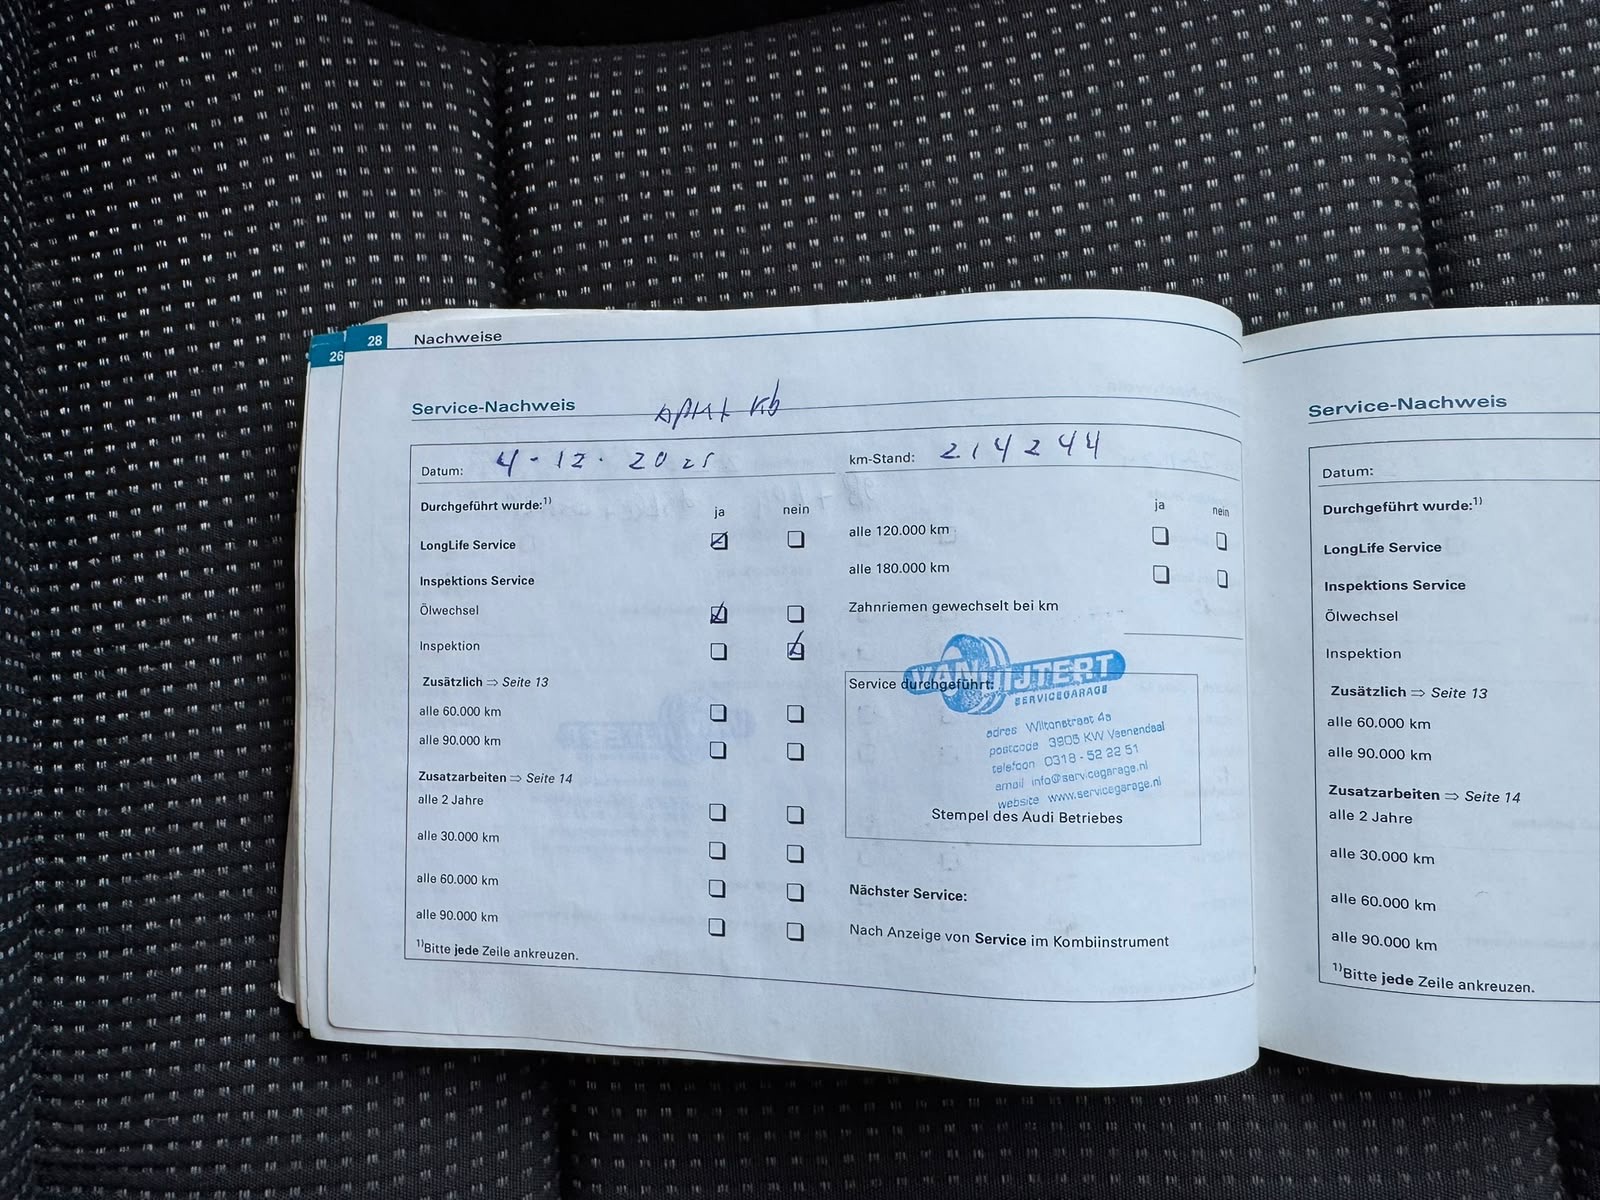 26
28
Nachweise
Service-Nachweis
Datum: 4-12-2025
km-Stand: 214244
Durchgeführt wurde:1)
ja
nein
LongLife Service
Inspektions Service
Ölwechsel
Inspektion
Zusätzlich ⇒ Seite 13
alle 60.000 km
alle 90.000 km
Zusatzarbeiten ⇒ Seite 14
alle 2 Jahre
alle 30.000 km
alle 60.000 km
alle 90.000 km
1)Bitte jede Zeile ankreuzen.
ja
nein
alle 120.000 km
alle 180.000 km
Zahnriemen gewechselt bei km
Service durchgeführt:
SERVICEGARAGE
adres Wiltonstraat 4a
postcode 3905 KW Veenendaal
telefoon 0318 - 52 22 51
email info@servicegarage.nl
website www.servicegarage.nl
Stempel des Audi Betriebes
Nächster Service:
Nach Anzeige von Service im Kombiinstrument
Service-Nachweis
Datum:
Durchgeführt wurde:1)
LongLife Service
Inspektions Service
Ölwechsel
Inspektion
Zusätzlich ⇒ Seite 13
alle 60.000 km
alle 90.000 km
Zusatzarbeiten ⇒ Seite 14
alle 2 Jahre
alle 30.000 km
alle 60.000 km
alle 90.000 km
1)Bitte jede Zeile ankreuzen.